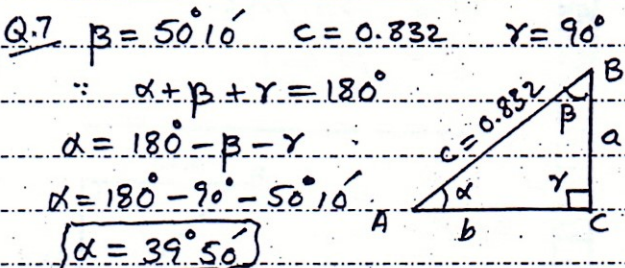 Q.7 β = 50°10′ c = 0.832 γ = 90°
∵ α + β + γ = 180°
α = 180° - β - γ
α = 180° - 90° - 50°10′
α = 39°50′
B
c = 0.832
β
a
α
γ
A
b
C